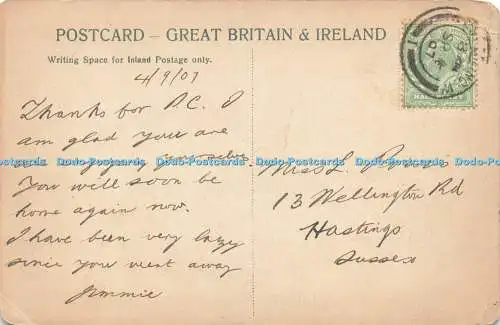 POSTCARD – GREAT BRITAIN & IRELAND
Writing Space for Inland Postage only.
4/9/07
Thanks for P.C. I
am glad your are
enjoying your selves
You will soon be
home again now.
I have been very lazy
since you went away
Jimmie
Miss L.
13 Wellington Rd
Hastings
Sussex
Dodo-Postcards Dodo-Postcards Dodo-Postcards Dodo-Postcards Dodo-Postcards Dodo-Postcards